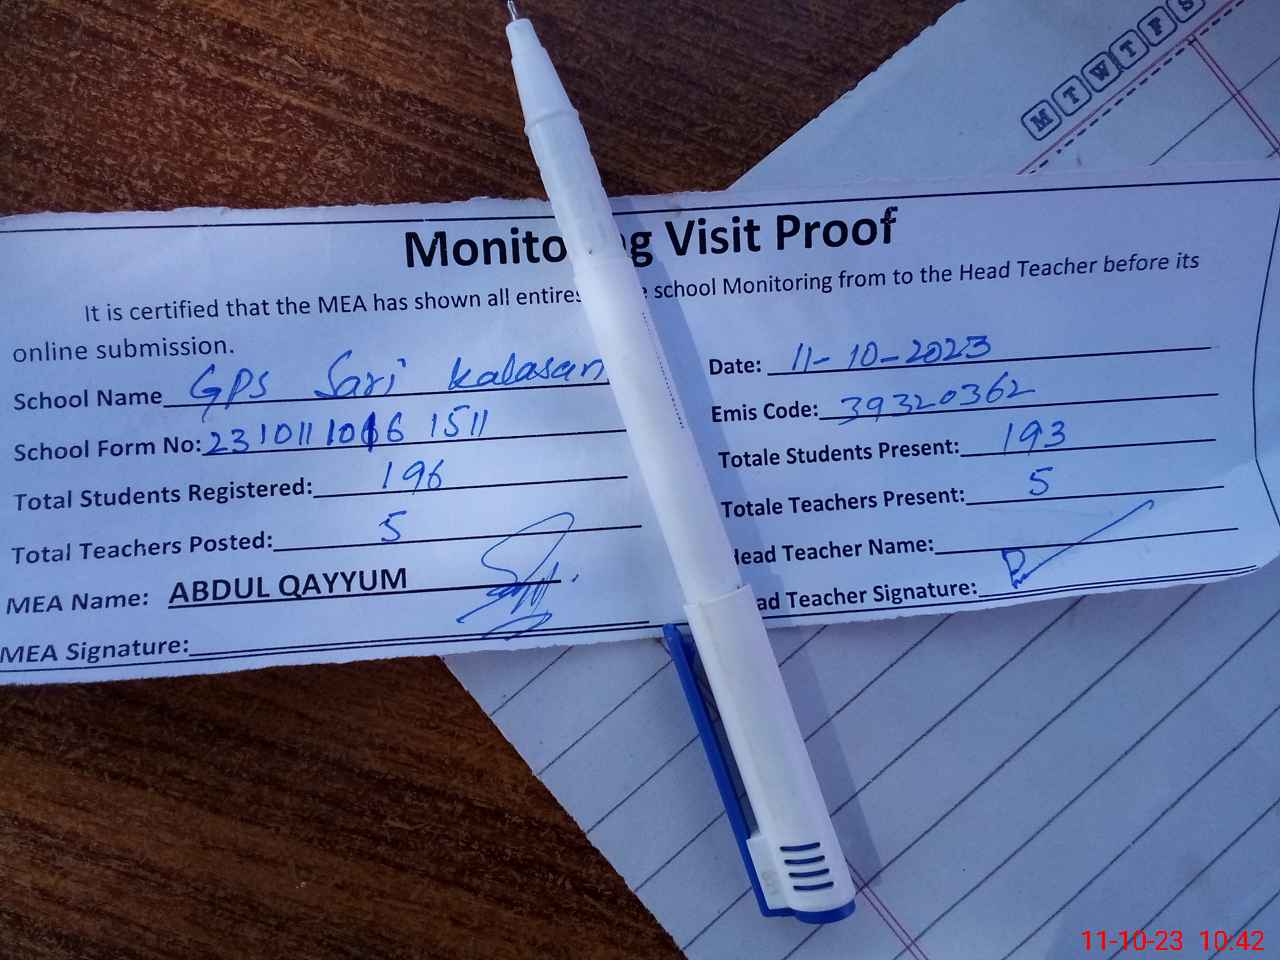 M T W T F S
Monitoring Visit Proof
It is certified that the MEA has shown all entires school Monitoring from to the Head Teacher before its
online submission.
School Name GPS Sari Kalasan
Date: 11-10-2023
School Form No: 23101110 6 1511
Emis Code: 39320362
Total Students Registered: 196
Totale Students Present: 193
Total Teachers Posted: 5
Totale Teachers Present: 5
MEA Name: ABDUL QAYYUM
Head Teacher Name:
MEA Signature:
Head Teacher Signature:
11-10-23 10:42